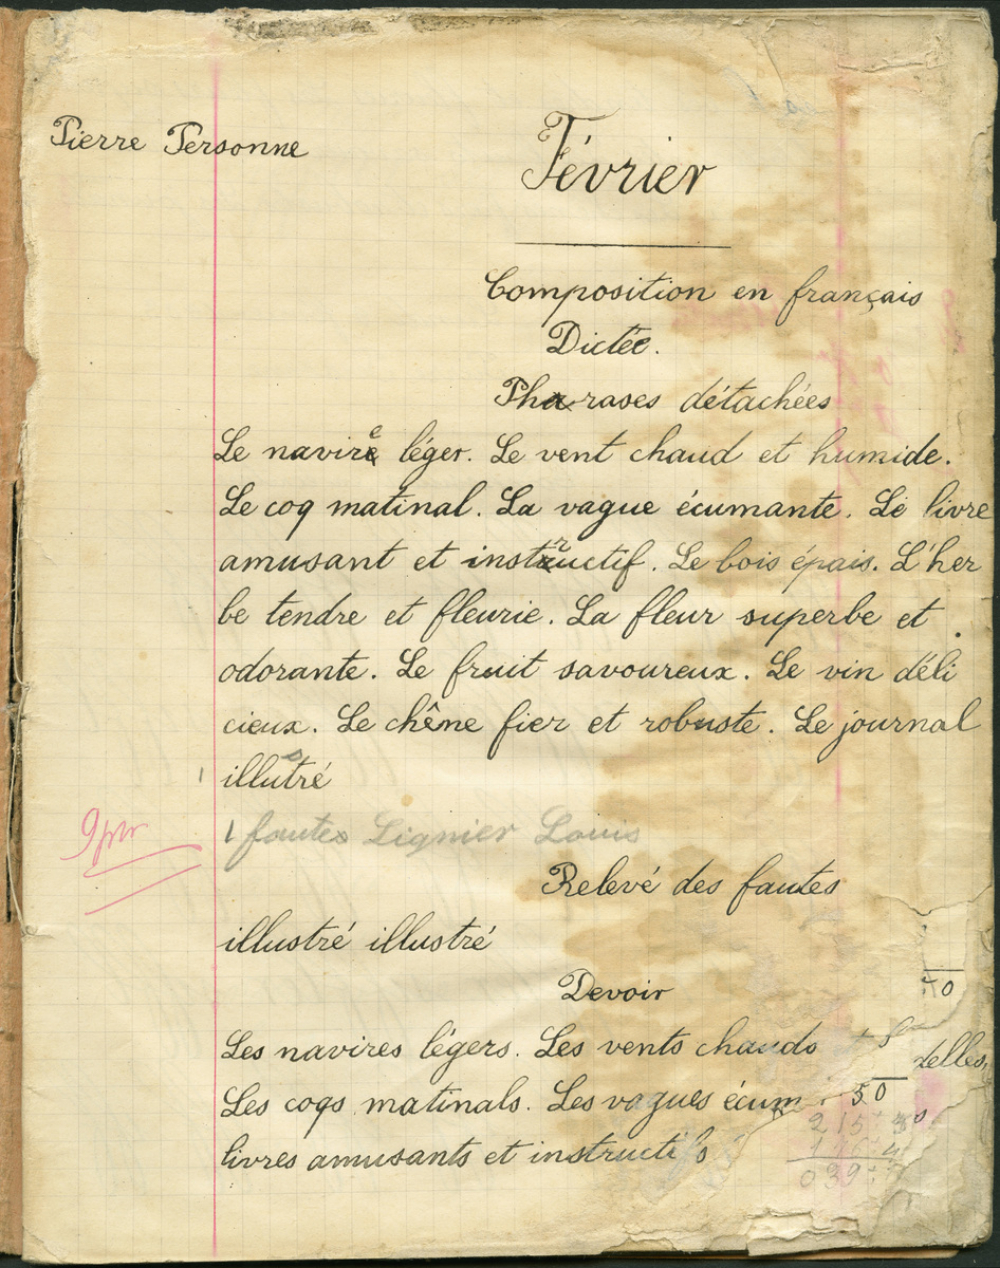 Pierre Personne
Février
Composition en français
Dictée.
Phrases détachées
Le navire léger. Le vent chaud et humide.
Le coq matinal. La vague écumante. Le livre
amusant et instructif. Le bois épais. L'her
be tendre et fleurie. La fleur superbe et
odorante. Le fruit savoureux. Le vin déli
cieux. Le chêne fier et robuste. Le journal
illutré
1 fautes Lignier Louis
Relevé des fautes
illustré illustré
Devoir
Les navires légers. Les vents chauds
Les coqs matinals. Les vagues écum
50
livres amusants et instructifs